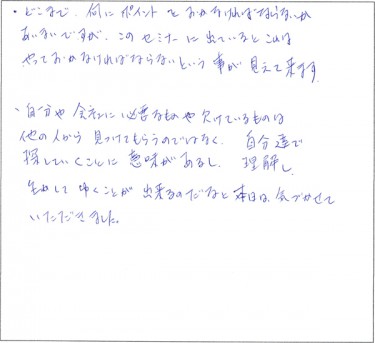 ・どこまで、何にポイントをおかなければならないか
あいまいですが、このセミナーに出ているとこれは
やっておかなければならないという事が見えて来ます。
・自分や会社に必要なものや欠けているものは
他の人から見つけてもらうのではなく、自分達で
探していくことに意味があるし、理解し、
生かしてゆくことが出来るのだなと本日は気づかせて
いただきました。